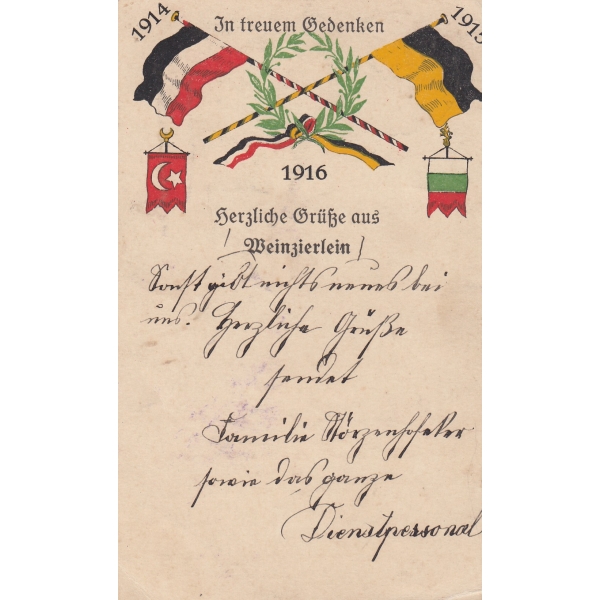 1914
In treuem Gedenken
1915
1916
Herzliche Grüße aus
Weinzierlein
Sonst gibt nichts neues bei
uns. Herzliche Grüße
sendet
Familie
sowie das ganze
Dienstpersonal